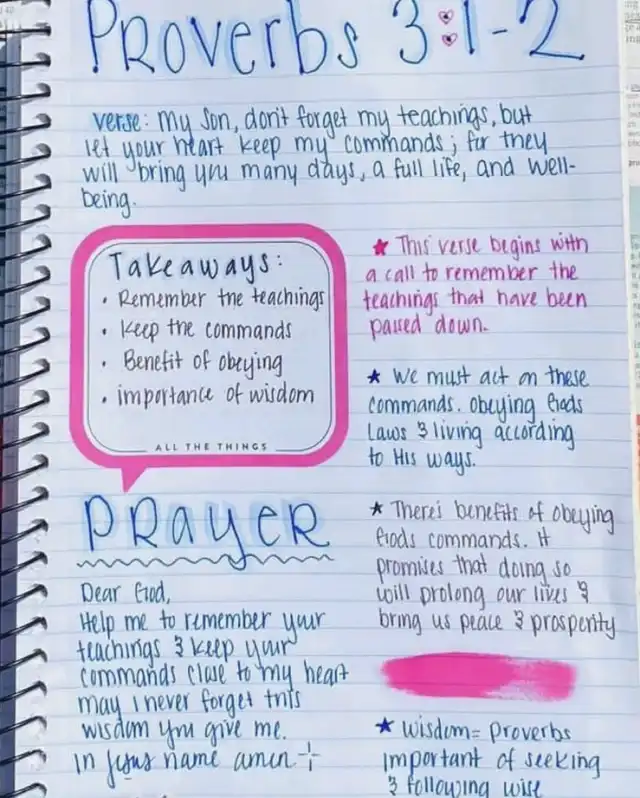 Proverbs 3:1-2
verse: my son, don't forget my teachings, but
let your heart keep my commands; for they
will bring you many days, a full life, and well-
being.
Takeaways:
• Remember the teachings
• Keep the commands
• Benefit of obeying
• importance of wisdom
ALL THE THINGS
★ This verse begins with
a call to remember the
teachings that have been
passed down.
★ We must act on these
commands. Obeying Gods
Laws & living according
to His ways.
★ There's benefits of obeying
Gods commands. it
promises that doing so
will prolong our lives &
bring us peace & prosperity
★ wisdom= Proverbs
important of seeking
& following wise
PRAYER
Dear God,
Help me to remember your
teachings & keep your
commands close to my heart
may i never forget this
wisdom you give me.
in Jesus name amen